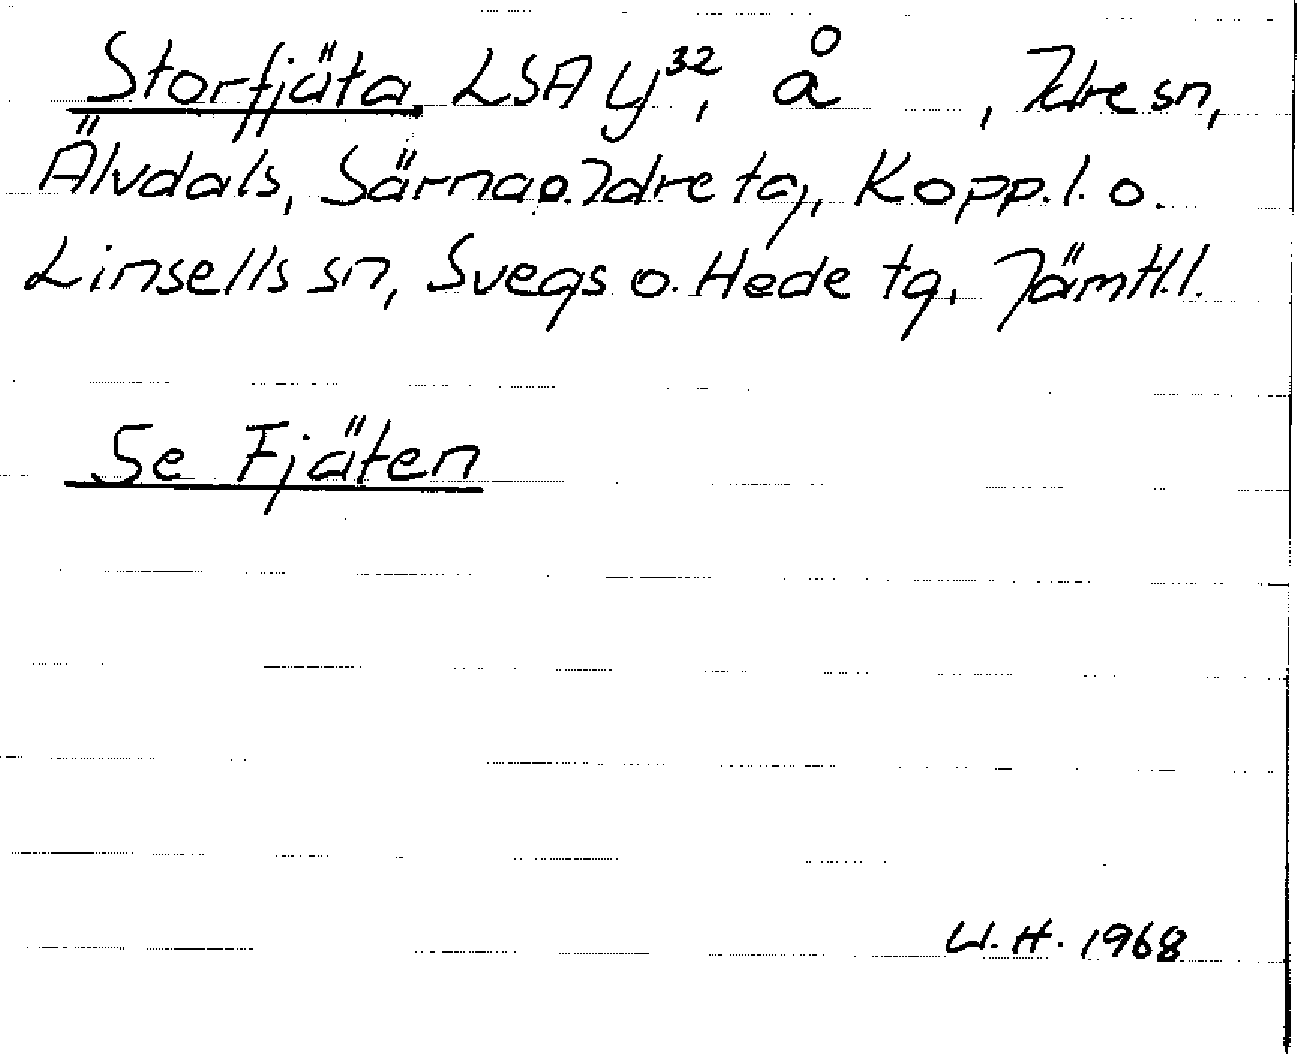 Storfjäta LSA y³², å , Idre sn,
Älvdals, Särna o. Idre tg, Kopp. l. o.
Linsells sn, Svegs o. Hede tg, Jämtl. l.
Se Fjäten
W. H. 1968